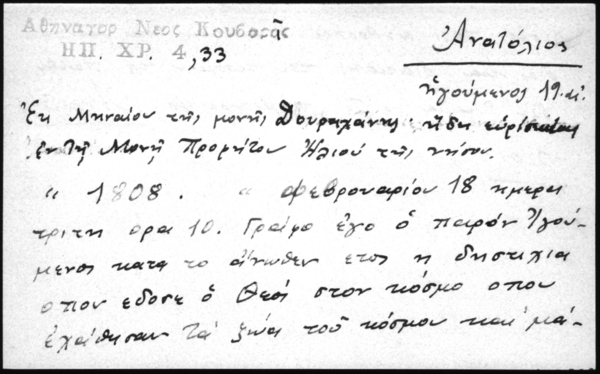 Αθηναγορ Νεος Κουβαρᾶς
ΗΠ. ΧΡ. 4, 33
Ἀνατόλιος
ἡγούμενος 19 αἰ.
Ἐκ Μηναίου τῆς μονῆς Δουραχάνης· ἤδη εὑρίσκεται
ἐν τῇ Μονῇ Προφήτου Ἠλιού τῆς νήσου.
" 1808. " Φεβρουαρίου 18 ημερα
τριτη ορα 10. Γραφο ἐγο ὁ παρόν Ἡγού-
μενος κατα το ἄνωθεν ετος η δηστιχια
οπου εδοσε ὁ Θεός στον κόσμο οπου
ἐχάθησαν τὰ ζῶα τοῦ κόσμου και μά-